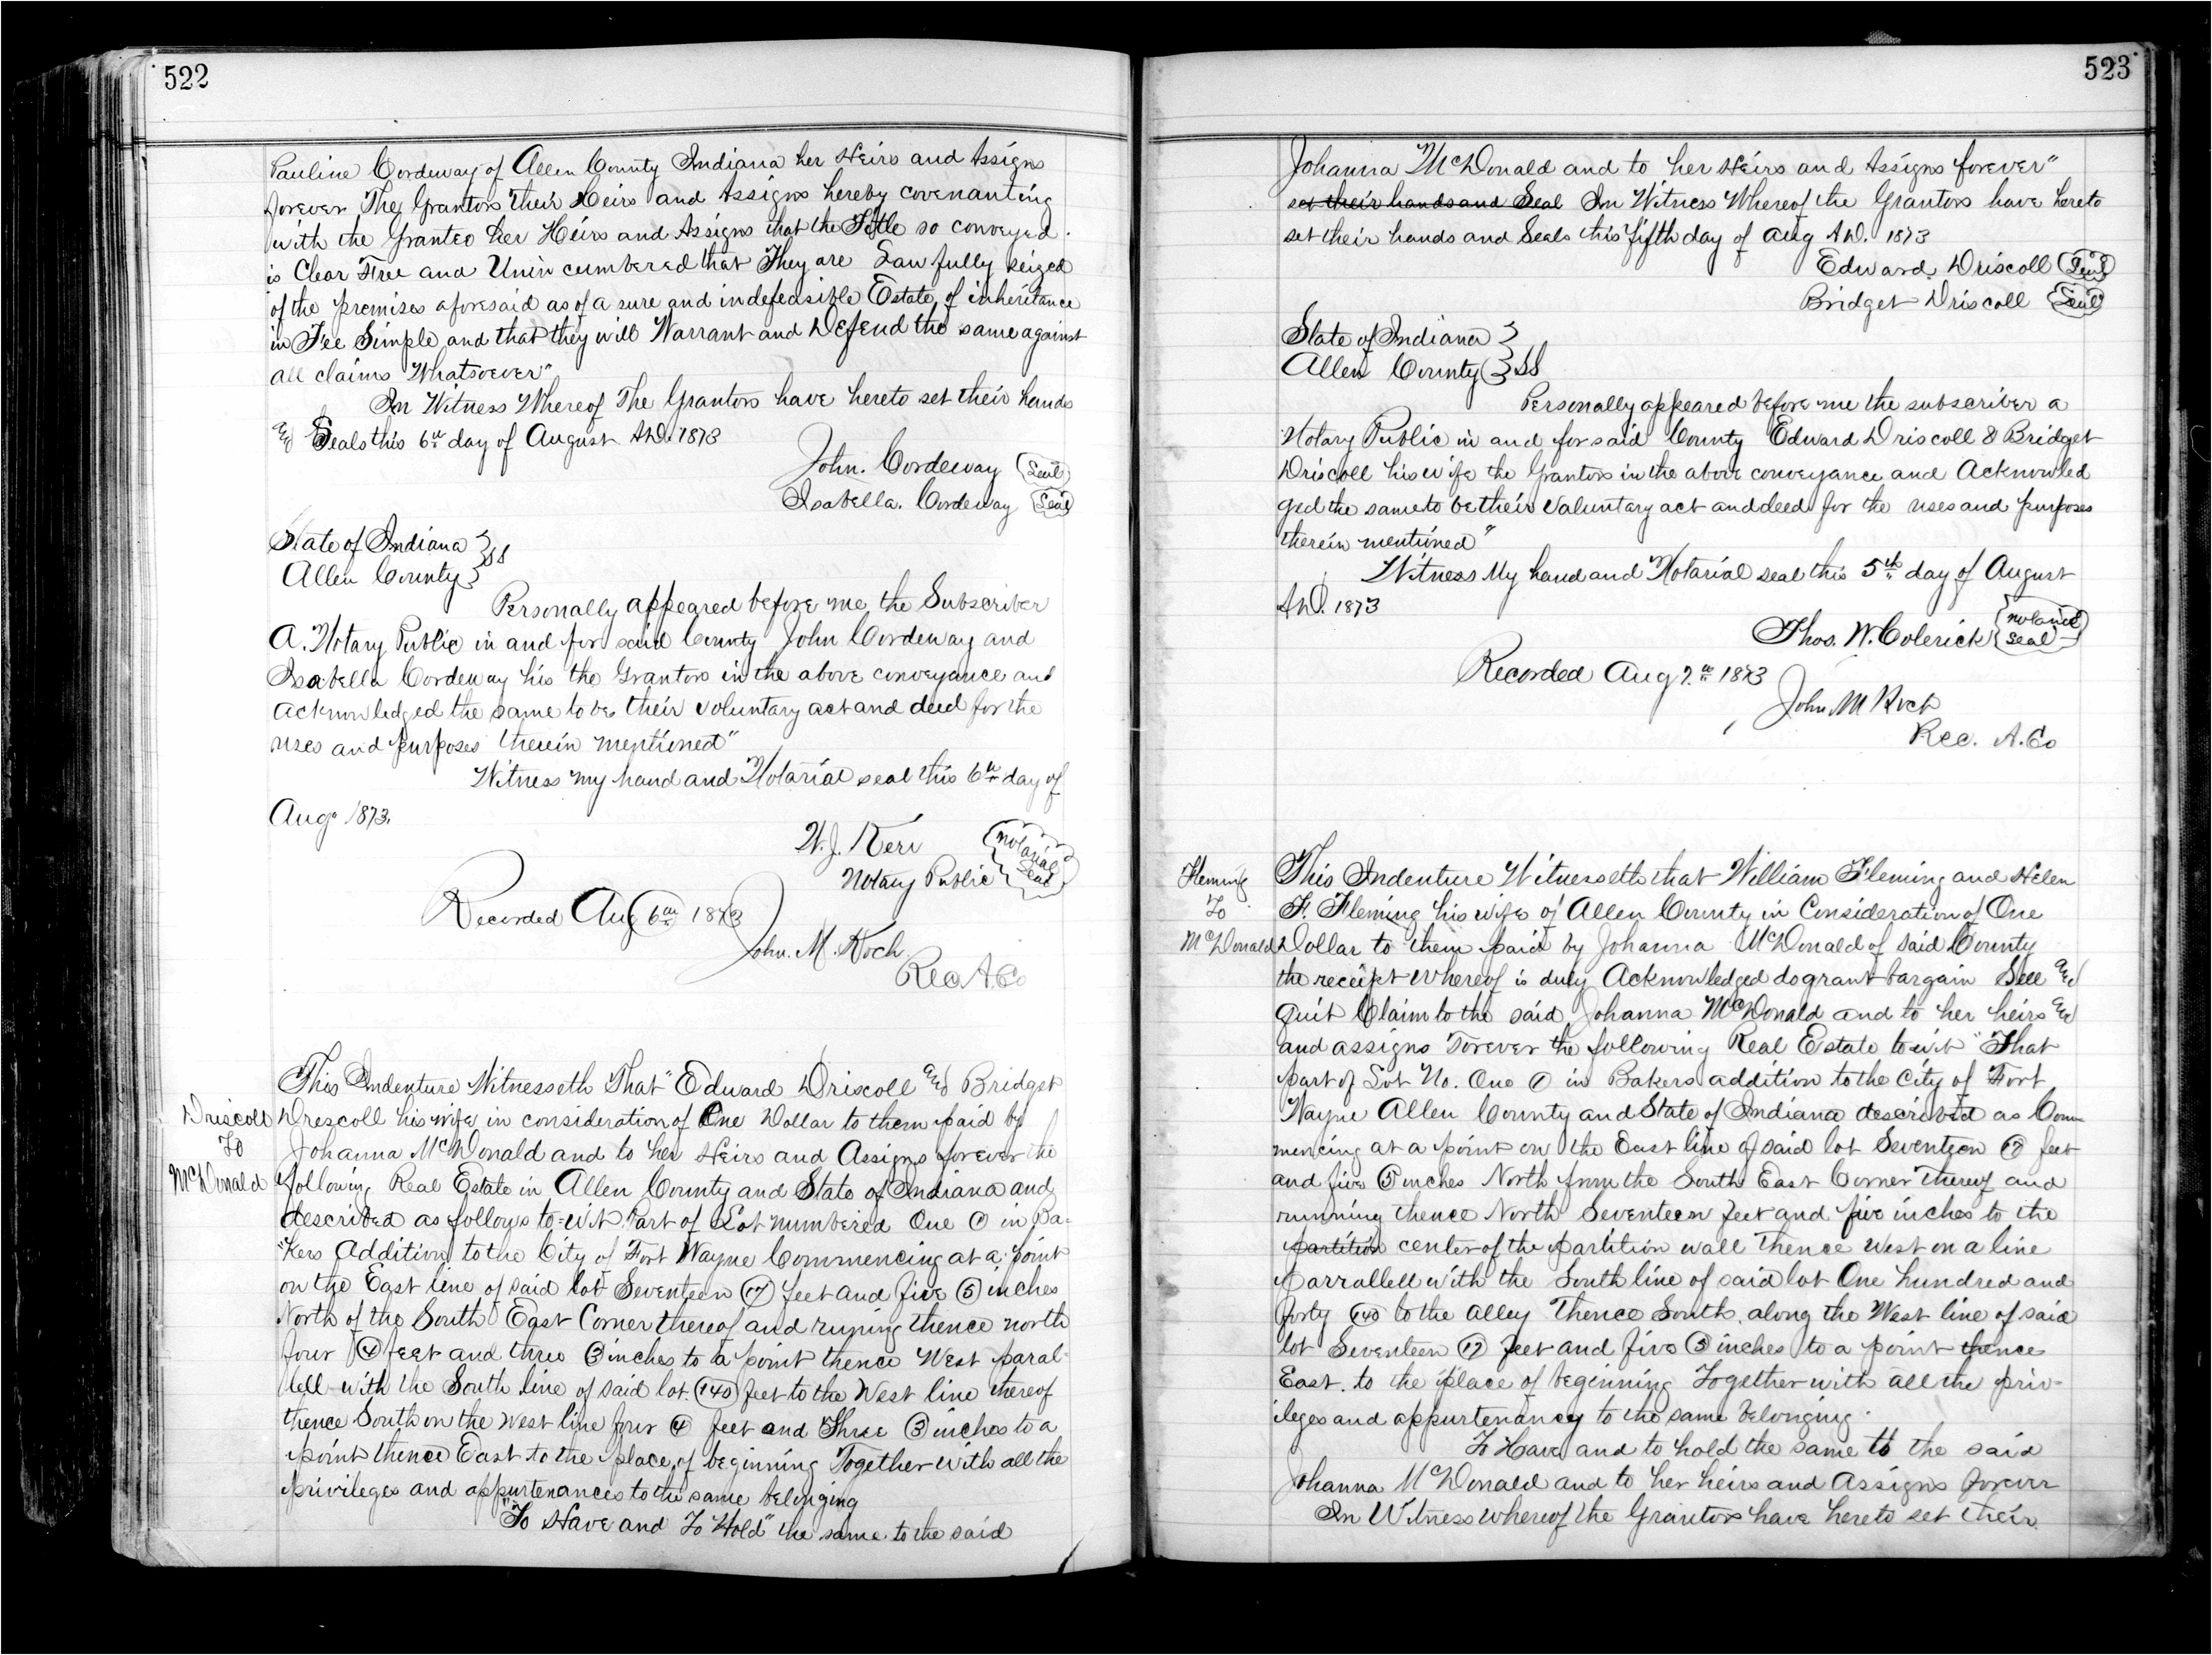 522
Pauline Cordeway of Allen County Indiana her Heirs and Assigns
forever The Grantors their Heirs and Assigns hereby covenanting
with the Grantee her Heirs and Assigns that the Title so conveyed
is Clear Free and Unincumbered that They are Lawfully seized
of the premises aforesaid as of a sure and indefeasible Estate of inheritance
in Fee Simple and that they will Warrant and Defend the same against
all claims Whatsoever"
In Witness Whereof The Grantors have hereto set their hands
and Seals this 6th day of August A.D. 1873
John. Cordeway (Seal)
Isabella. Cordeway (Seal)
State of Indiana }
Allen County } SS
Personally appeared before me, the Subscriber
A. Notary Public in and for said County John Cordeway and
Isabella Cordeway his the Grantors in the above conveyance and
acknowledged the same to be their voluntary act and deed for the
uses and purposes therein mentioned"
Witness my hand and Notarial seal this 6th day of
Aug. 1873.
W.J. Kerr
Notary Public (Notarial Seal)
Recorded Aug 6th 1873
John. M. Koch
Rec A. Co
This Indenture Witnesseth That" Edward Driscoll and Bridget
Driscoll Drescoll his wife in consideration of One Dollar to them paid by
To Johanna McDonald and to her Heirs and Assigns forever the
McDonald following Real Estate in Allen County and State of Indiana and
described as follows to=wit Part of Lot numbered One (1) in Ba-
"kers Addition to the City of Fort Wayne Commencing at a point
on the East line of said lot Seventeen (17) feet and five (5) inches
North of the South East Corner thereof and runing thence north
four (4) feet and three (3) inches to a point thence West paral-
lell with the South line of said lot (140) feet to the West line thereof
thence South on the west line four (4) feet and Three (3) inches to a
point thence East to the place of beginning Together with all the
privileges and appurtenances to the same belonging
"To Have and To Hold" the same to the said
523
Johanna McDonald and to her Heirs and Assigns forever"
set their hands and Seal In Witness Whereof the Grantors have hereto
set their hands and Seals this fifth day of Aug A.D. 1873
Edward Driscoll (Seal)
Bridget Driscoll (Seal)
State of Indiana }
Allen County } SS
Personally appeared before me the subscriber a
Notary Public in and for said County Edward Driscoll & Bridget
Driscoll his wife the Grantors in the above conveyance and Acknowled
ged the same to be their voluntary act and deed for the uses and purposes
therein mentioned"
Witness My hand and Notarial seal this 5th day of August
A.D. 1873
Thos. W. Colerick (Notarial Seal)
Recorded Aug 7th 1873
John M Koch
Rec. A. Co
Fleming This Indenture Witnesseth that William Fleming and Helen
To F. Fleming his wife of Allen County in Consideration of One
McDonald Dollar to them paid by Johanna McDonald of said County
the receipt whereof is duly Acknowledged do grant bargain Sell and
Quit Claim to the said Johanna McDonald and to her heirs and
and assigns Forever the following Real Estate to wit "That
part of Lot No. One (1) in Bakers addition to the City of Fort
Wayne Allen County and State of Indiana described as Com-
mencing at a point on the East line of said lot Seventeen (17) feet
and five (5) inches North from the South East Corner Thereof and
running thence North Seventeen feet and five inches to the
partition center of the partition wall Thence West on a line
Parrallell with the South line of said lot One hundred and
forty (140) to the Alley Thence South along the West line of said
lot Seventeen (17) feet and five (5) inches to a point thence
East. to the place of beginning Together with all the priv-
ileges and appurtenancy to the same belonging.
To Have and to hold the same to the said
Johanna McDonald and to her heirs and Assigns forever
In Witness whereof the Grantors have hereto set their